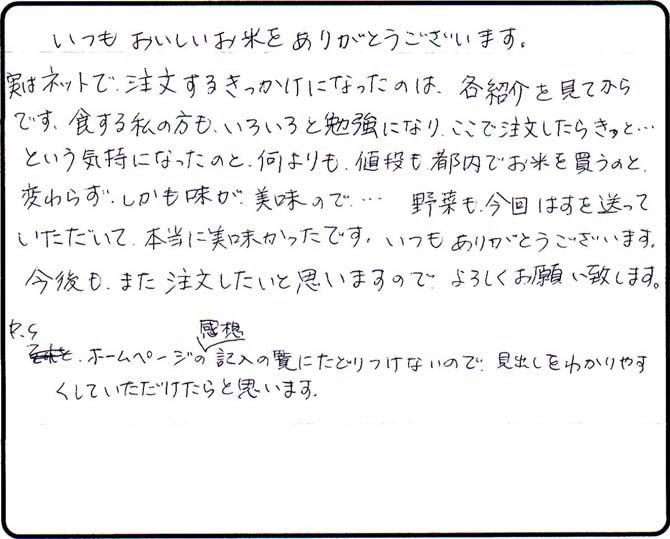 いつもおいしいお米をありがとうございます。
実はネットで、注文するきっかけになったのは、各紹介を見てから
です、食する私の方も、いろいろと勉強になり、ここで注文したらきっと…
という気持になったのと、何よりも、値段も都内でお米を買うのと、
変わらず、しかも味が、美味ので、… 野菜も、今回はすを送って
いただいて、本当に美味かったです、いつもありがとうございます。
今後も、また注文したいと思いますので、よろしくお願い致します。
P.S
ホームページの感想記入の覧にたどりつけないので、見出しをわかりやす
くしていただけたらと思います。